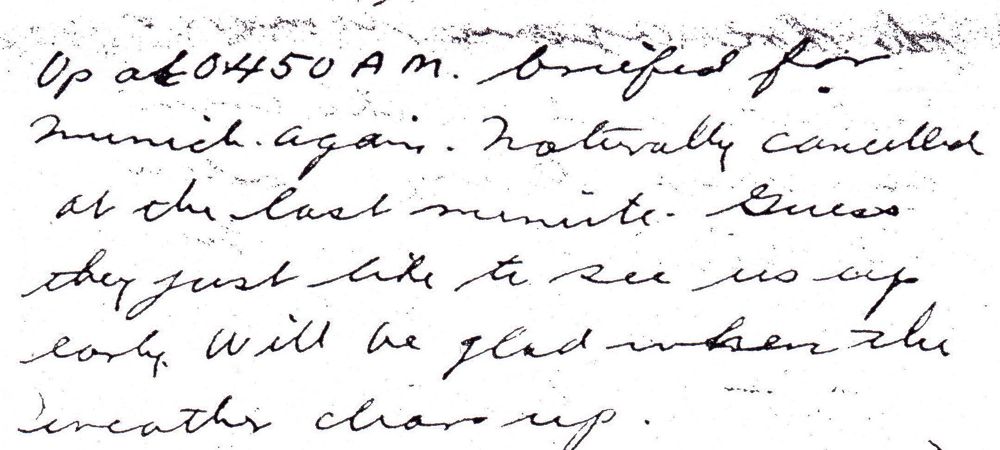 Up at 0450 A M. briefed for
Munich. again. Naturally cancelled
at the last minute. Guess
they just like to see us up
early. Will be glad when the
weather clears up.